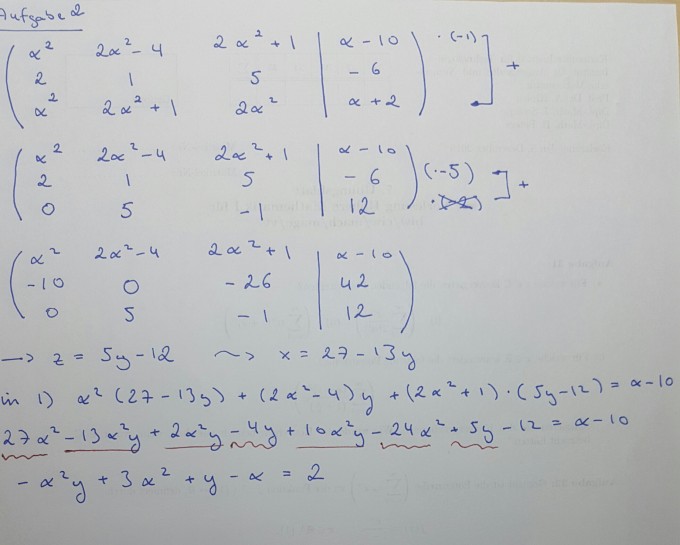 Aufgabe 2
α² 2α²-4 2α²+1 | α-10 ·(-1)
2 1 5 | -6 +
α² 2α²+1 2α² | α+2
α² 2α²-4 2α²+1 | α-10
2 1 5 | -6 (·-5) +
0 5 -1 | 12
α² 2α²-4 2α²+1 | α-10
-10 0 -26 | 42
0 5 -1 | 12
→ z = 5y-12 ⤳ x = 27-13y
in 1) α² (27-13y) + (2α²-4)y + (2α²+1)·(5y-12) = α-10
27α² -13α²y + 2α²y -4y + 10α²y - 24α² + 5y - 12 = α-10
-α²y + 3α² + y - α = 2